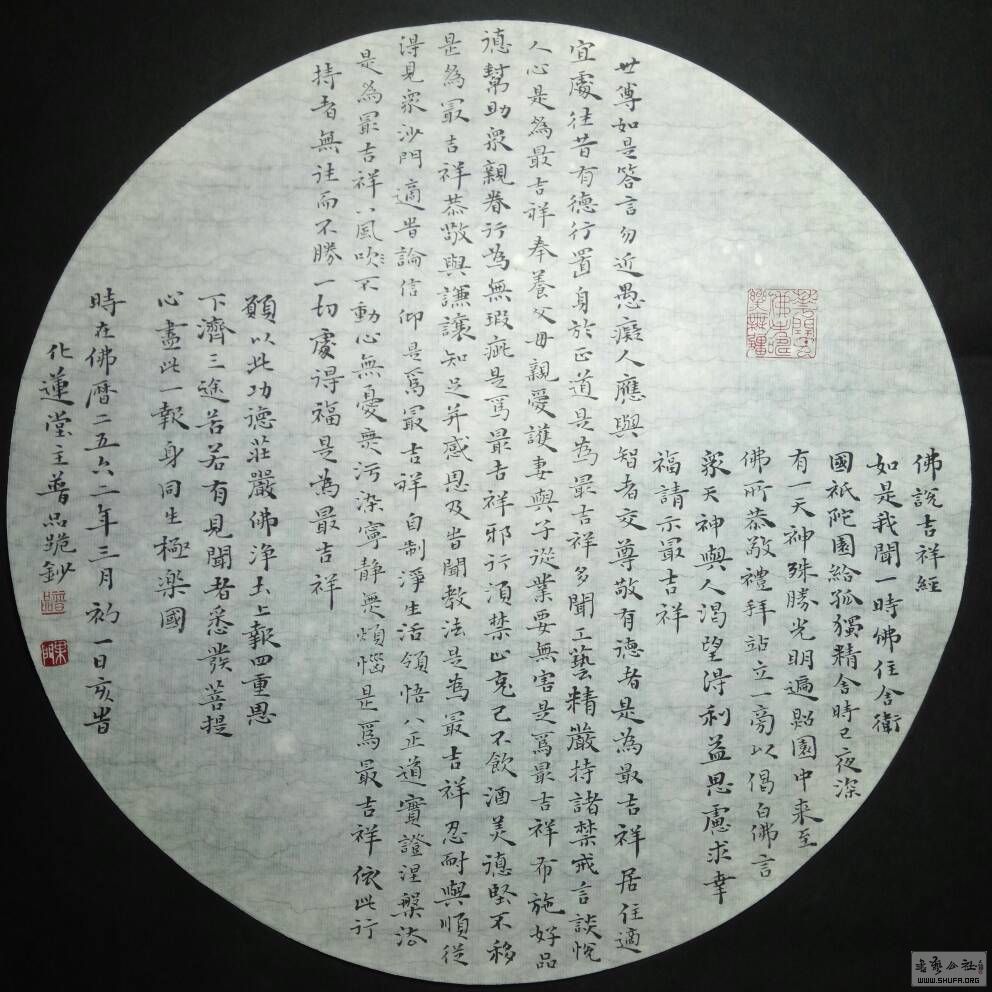 佛說吉祥經
如是我聞一時佛住舍衛
國祇陀園給孤獨精舍時已夜深
有一天神殊勝光明遍照園中来至
佛所恭敬禮拜站立一旁以偈白佛言
衆天神與人渴望得利益思慮求幸
福請示最吉祥
世傅如是答言勿近愚癡人應與智者交尊敬有德者是為最吉祥居住適
宜處往昔有德行置身於正道是為最吉祥多聞工藝精嚴持諸禁戒言談悅
人心是為最吉祥奉養父母親愛護妻與子從業要無害是為最吉祥布施好品
德幫助衆親眷行為無瑕疵是為最吉祥邪行須禁止克己不飲酒美德堅不移
是為最吉祥恭敬與謙讓知足并感恩及時聞教法是為最吉祥忍耐與順從
得見衆沙門適時論信仰是為最吉祥自制淨生活領悟八正道實證涅槃法
是為最吉祥八風吹不動心無憂無污染寧静無煩惱是為最吉祥依此行
持者無往而不勝一切處得福是為最吉祥
願以此功德莊嚴佛淨土上報四重恩
下濟三途苦若有見聞者悉發菩提
心盡此一報身同生極樂國
時在佛曆二五六二年三月初一日亥時
化蓮堂主普品跪鈔
WWW.SHUFA.ORG